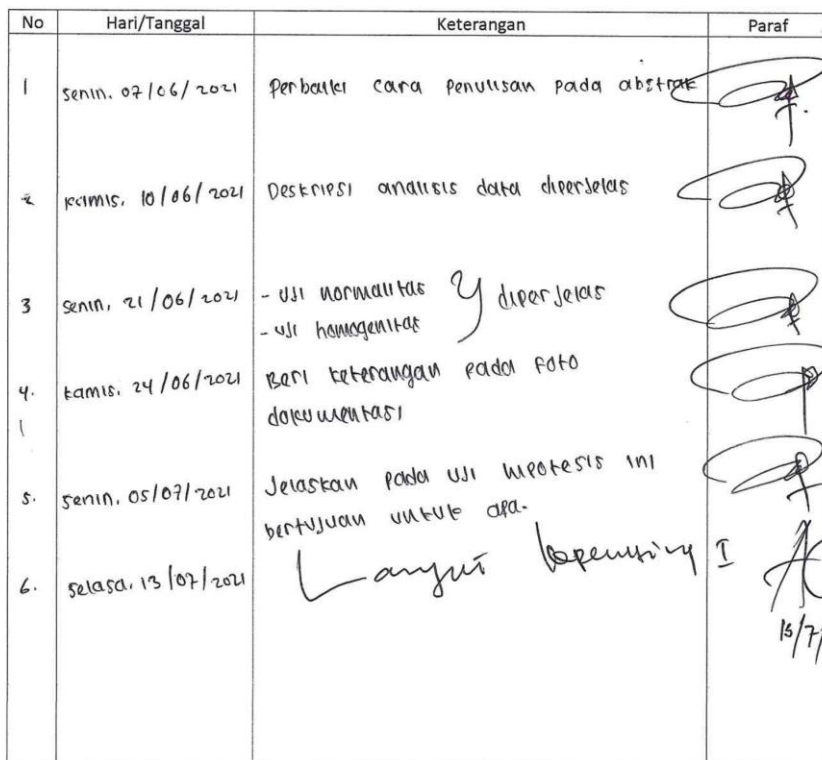 No Hari/Tanggal Keterangan Paraf
1 Senin, 07/06/2021 Perbaiki cara penulisan pada abstrak
2 Kamis, 10/06/2021 Deskripsi analisis data diperjelas
3 Senin, 21/06/2021 - Uji normalitas } diperjelas
- Uji homogenitas
4. Kamis, 24/06/2021 Beri keterangan pada foto
dokumentasi
5. Senin, 05/07/2021 Jelaskan pada uji hipotesis ini
bertujuan untuk apa.
6. Selasa, 13/07/2021 Lanjut I